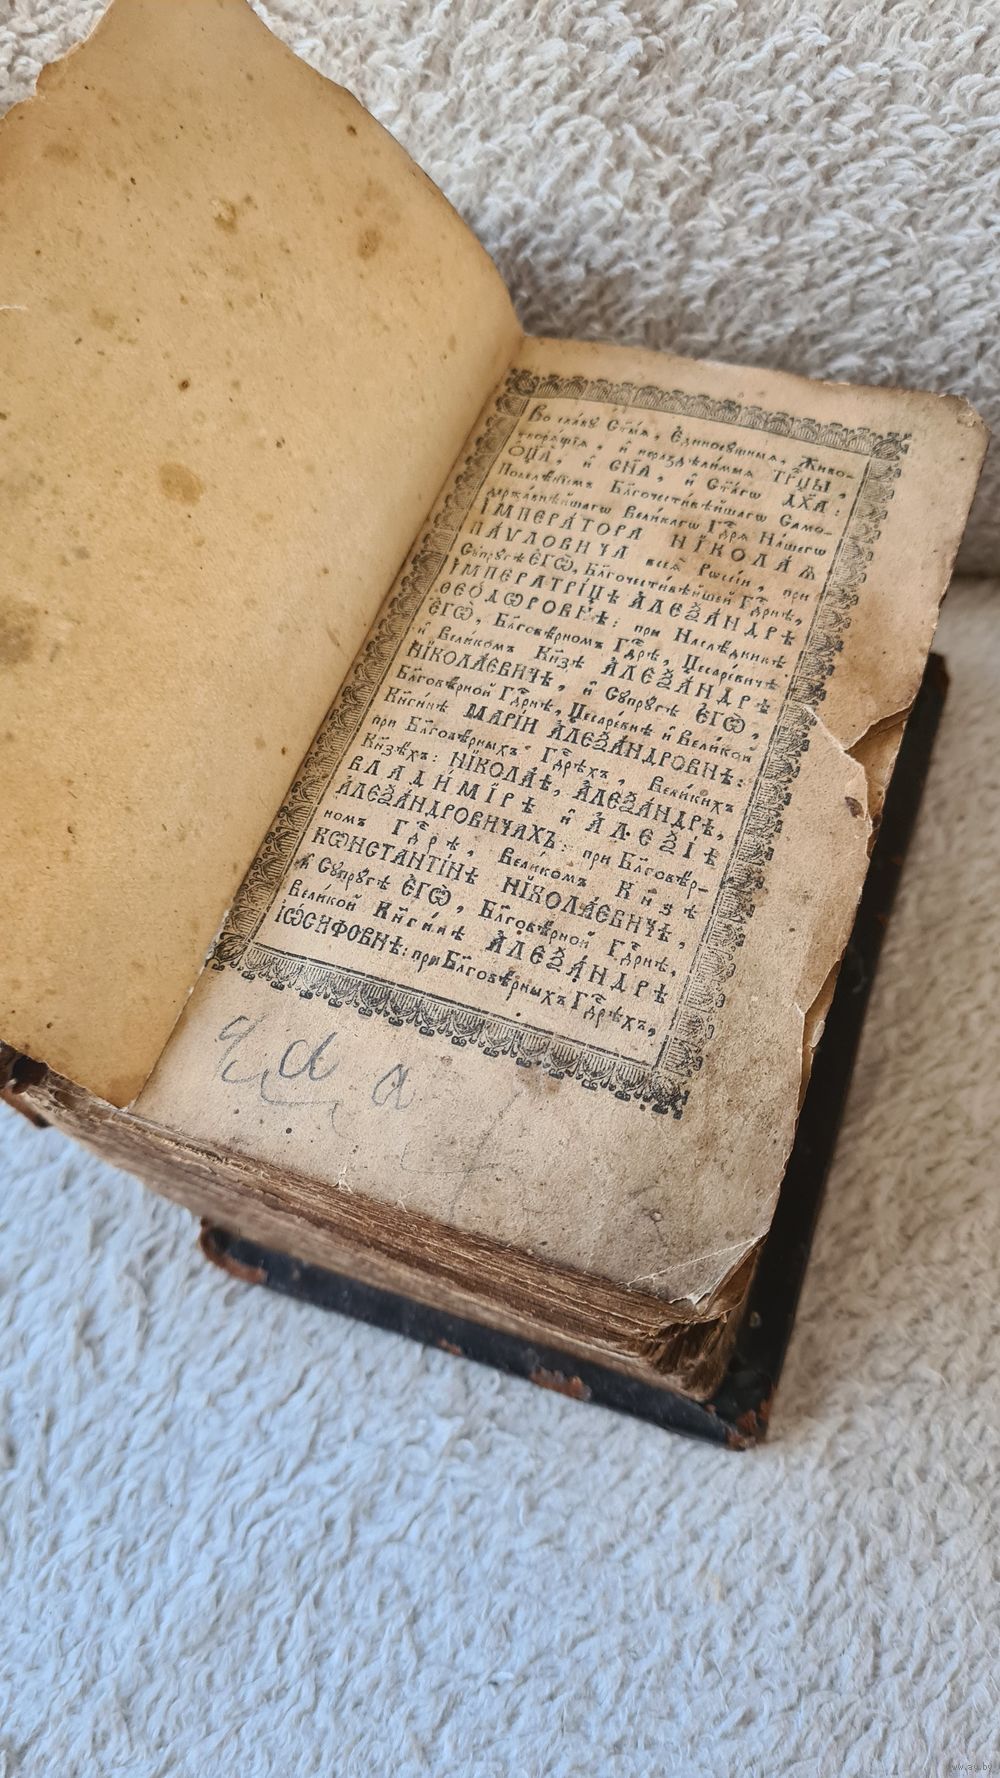 Во славу Ст҃ыѧ, Е҆диносꙋ́щныѧ, Живо-
творѧ́щїѧ, и҆ нераздѣли́мыѧ ТРЦ҃Ы,
Ѻ҆ЦА҃, и҆ СН҃А, и҆ Ст҃а́гѡ ДХ҃А:
Повелѣ́нїемъ Бл҃гочести́вѣйшагѡ Само-
держа́внѣйшагѡ Вели́кагѡ Гдⷭ҇рѧ На́шегѡ
І҆МПЕРА́ТОРА НЇКОЛА́Ѧ
ПА́ѴЛОВИЧА всеѧ̀ Рѡссі́и, при
Сꙋпрꙋ́гѣ Е҆ГѠ̀, Бл҃гочести́вѣйшей Гдⷭ҇рнѣ,
І҆МПЕРАТРІ́ЦѢ А҆ЛЕѮА́НДРѢ
ѲЕО́ДѠРОВНѢ: при Наслѣ́дникѣ
Е҆ГѠ̀, Бл҃говѣ́рномъ Гдⷭ҇рѣ, Цесаре́вичѣ
и҆ Вели́комъ Кн҃зѣ А҆ЛЕѮА́НДРѢ
НЇКОЛА́ЕВИЧѢ, и҆ Сꙋпрꙋ́гѣ Е҆ГѠ̀,
Бл҃говѣ́рной Гдⷭ҇рнѣ, Цесаре́внѣ и҆ Вели́кой
Кн҃ги́нѣ МАРІ́И А҆ЛЕѮА́НДРОВНѢ:
при Бл҃говѣ́рныхъ Гдⷭ҇рѣхъ, Вели́кихъ
Кн҃зѣ́хъ: НЇКОЛА́Ѣ, А҆ЛЕѮА́НДРѢ,
ВЛАДИ́МЇРѢ и҆ А҆ЛЕѮІ́Ѣ
А҆ЛЕѮА́НДРОВИЧАХЪ: при Бл҃говѣ́р-
номъ Гдⷭ҇рѣ, Вели́комъ Кн҃зѣ
КѠНСТАНТІ́НѢ НЇКОЛА́ЕВИЧѢ,
и҆ Сꙋпрꙋ́гѣ Е҆ГѠ̀, Бл҃говѣ́рной Гдⷭ҇рнѣ,
Вели́кой Кн҃ги́нѣ А҆ЛЕѮА́НДРѢ
І҆Ѡ́СИФОВНѢ: при Бл҃говѣ́рныхъ Гдⷭ҇рѣхъ,
www.ay.by